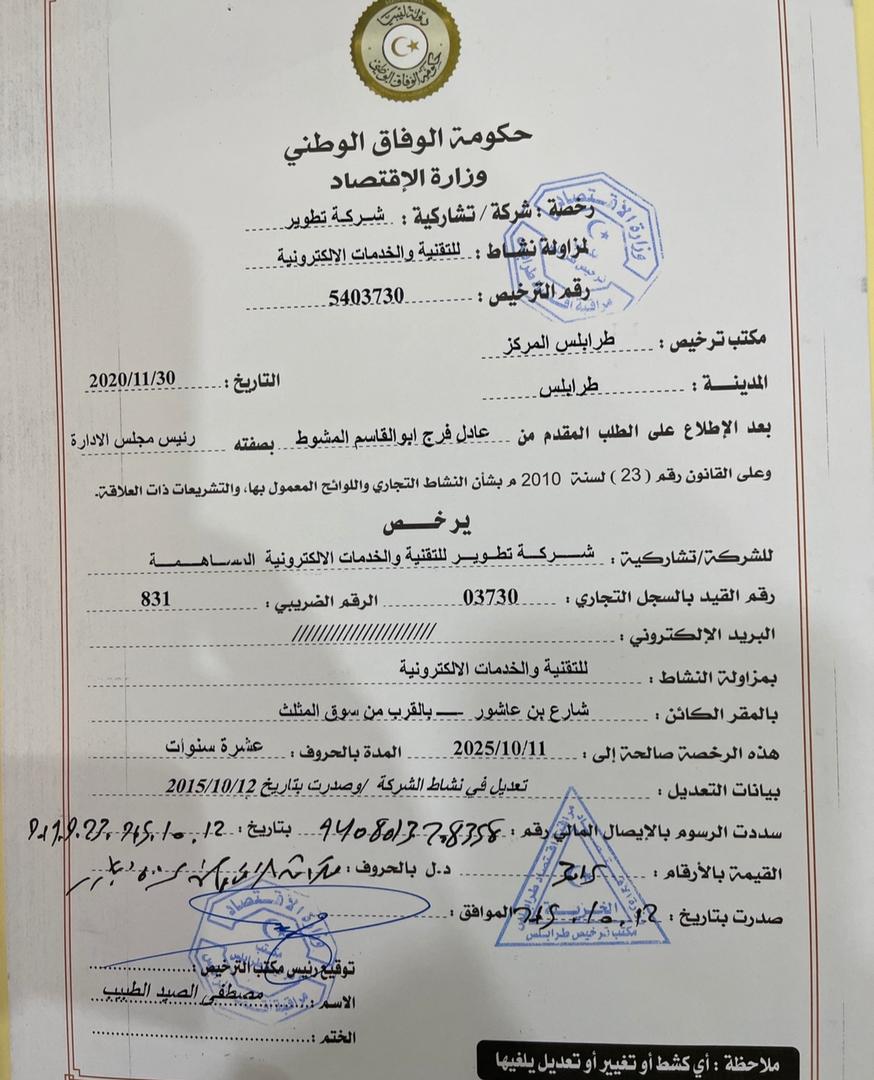 دولة ليبيا
حكومة الوفاق الوطني
حكومة الوفاق الوطني
وزارة الإقتصاد
رخصة : شركة / تشاركية : شركة تطوير
لمزاولة نشاط : للتقنية والخدمات الالكترونية
رقم الترخيص : 5403730
وزارة الاقتصاد
مكتب ترخيص : طرابلس المركز
المدينة : طرابلس التاريخ : 2020/11/30
بعد الإطلاع على الطلب المقدم من عادل فرج ابوالقاسم المشوط بصفته رئيس مجلس الادارة
وعلى القانون رقم ( 23 ) لسنة 2010 م بشأن النشاط التجاري واللوائح المعمول بها، والتشريعات ذات العلاقة.
يرخص
للشركة/تشاركية : شركة تطوير للتقنية والخدمات الالكترونية المساهمة
رقم القيد بالسجل التجاري : 03730 الرقم الضريبي : 831
البريد الإلكتروني : ///////////////////////
بمزاولة النشاط : للتقنية والخدمات الالكترونية
بالمقر الكائن : شارع بن عاشور — بالقرب من سوق المثلث
هذه الرخصة صالحة إلى : 2025/10/11 المدة بالحروف : عشرة سنوات
بيانات التعديل : تعديل في نشاط الشركة /وصدرت بتاريخ 2015/10/12
سددت الرسوم بالإيصال المالي رقم : بتاريخ :
القيمة بالأرقام : 315 د.ل بالحروف :
صدرت بتاريخ : الموافق :
الخزينة
مكتب ترخيص طرابلس
وزارة الاقتصاد
توقيع رئيس مكتب الترخيص :
الاسم : مصطفى الصيد الطبيب
الختم :
ملاحظة : أي كشط أو تغيير أو تعديل يلغيها